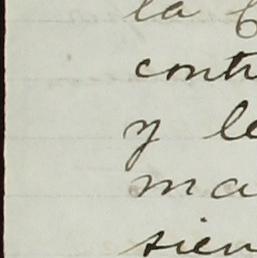 la
contr
y le
ma
sien